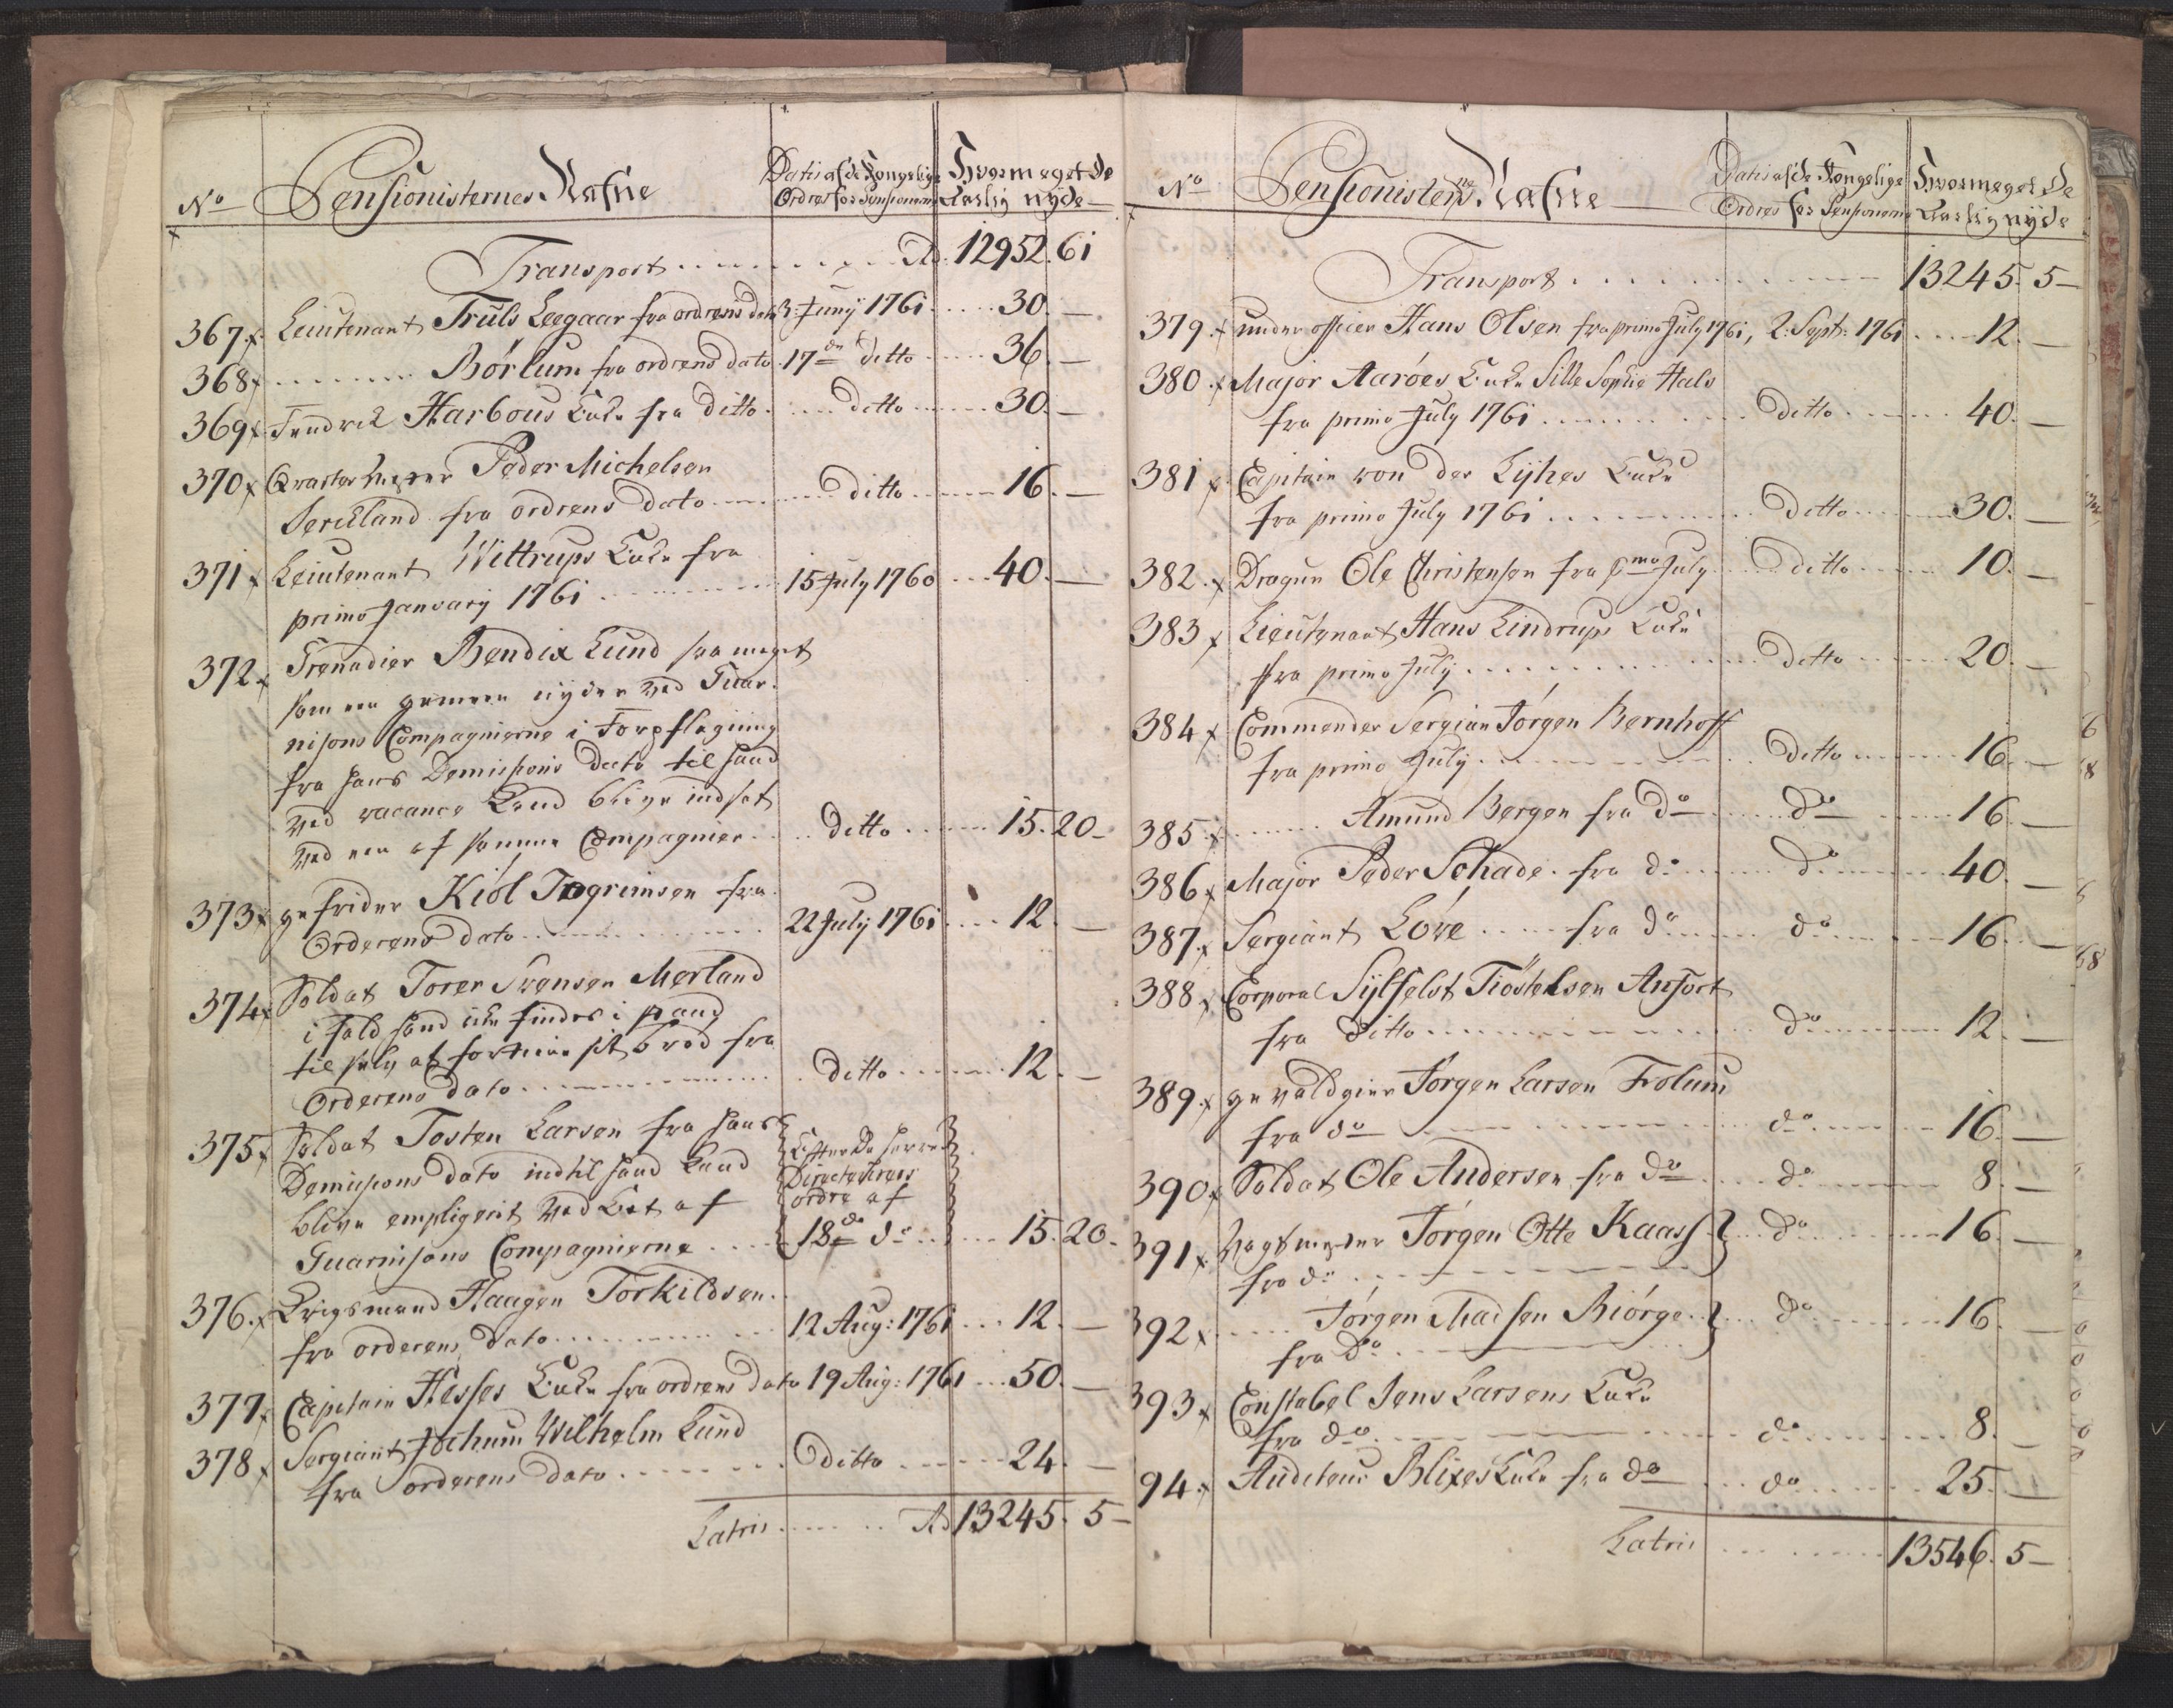 No Pensionisternes Nafne Datis af de Kongelige Hvormeget de
Ordres for Pensionerne Aarlig nyde
Transport Rd 12952. 61
367. Leiutenant Truls Leegaar fra ordrens dato 3. Junÿ 1761 30. —
368 Börlum fra ordrens dato 17de ditto 36. —
369 Fendrik Harbous Enke fra ditto ditto 30. —
370 Qvartermester Peder Michelsen
Serckland fra ordrens dato ditto 16. —
371 Leiutenant Wittrups Enke fra
primo Janvarÿ 1761 15 July 1760 40. —
372 Grenadier Bendix Lund saa meget
som een gemeen nyder ved Guar-
nisons Compagnierne i Forpflegning
fra hans Demissions dato til hand
ved vacance kand blive indsat
ved een af samme Compagnier ditto 15. 20 —
373 gefrider Kiöl Togrimsen fra
Orderens dato 22 Julÿ 1761 12. —
374 Soldat Torer Svensen Merland
i fald hand icke findes i stand
til selv at fortiene sit bröd fra
Orderens dato ditto 12. —
375 Soldat Tosten Larsen fra hans
Demissions dato indtil hand kand
blive empligerit ved Eet af
Guarnisons Compagnierne
Efter de herrer
Directeurers
ordre af
18de do 15. 20 —
376. Krigsmand Haagen Torkildsen
fra orderens dato 12 Aug: 1761 12. —
377 Capitain Hesses Enke fra ordrens dato 19 Aug: 1761 50. —
378 Sergiant Jochum Wilhelm Lund
fra orderens dato Ditto 24. —
Latris Rd 13245. 5 —
No Pensionisternes Nafne Datis af de Kongelige Hvormeget de
Ordres for Pensionerne Aarlig nyde
Transport 13245. 5 —
379. under officier Hans Olsen fra primo July 1761, 2. Sept: 1761 12. —
380. Major Aaröes Enke Sille Sophie Hals
fra primo July 1761 ditto 40. —
381 Capitain von der Lÿhes Enke
fra primo July 1761 ditto 30. —
382. Dragun Ole Christensen fra pmo July ditto 10. —
383 Lieutenant Hans Lindrups Enke
fra primo July ditto 20. —
384 Commender Sergian Jörgen Bernhoff
fra primo July ditto 16. —
385. Amund Bergen fra do do 16. —
386 Major Peder Schade fra do do 40. —
387. Sergiant Löve fra do do 16. —
388 Corporal Sylfelst Tiöstelsen Ansort
fra ditto do 12. —
389. gevaldgier Jörgen Larsen Frolum
fra do do 16. —
390 Soldat Ole Andersen fra do do 8. —
391 Vagtmester Jörgen Otte Kaass do 16. —
fra do
392 Jörgen Madsen Biörge do 16. —
fra do
393 Constabel Jens Larsens Enke
fra do do 8. —
94. Auditeur Blixes Enke fra do do 25. —
Latris 13546. 5 —